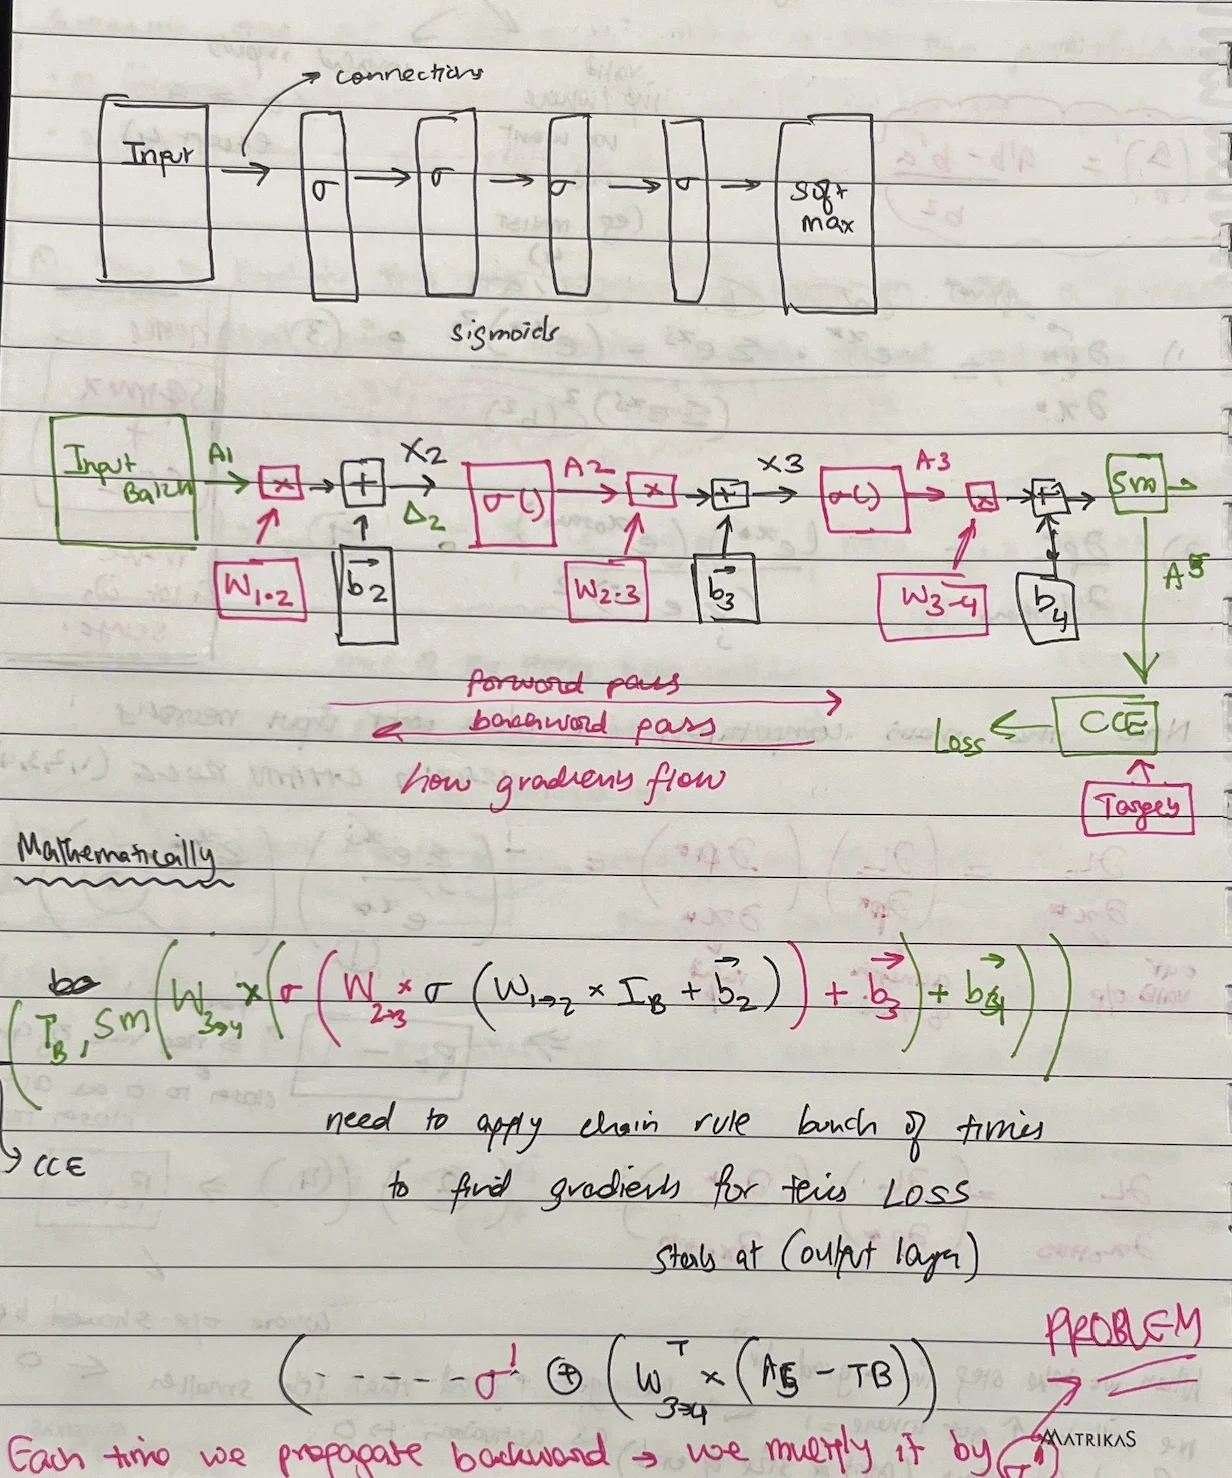 connections
Input
σ
σ
σ
σ
Soft
max
sigmoids
Input
Batch
A1
×
+
X2
Δ2
σ()
A2
×
+
X3
σ()
A3
×
+
Sm
W1→2
b2
W2→3
b3
W3→4
b4
A5
forward pass
backward pass
how gradients flow
Loss
CCE
Target
Mathematically
(TB, Sm(W3→4 × (σ(W2→3 × σ(W1→2 × IB + b2)) + b3) + b4))
CCE
need to apply chain rule bunch of times
to find gradients for this LOSS
starts at (output layer)
PROBLEM
(- - - - - σ' ⊕ (W3→4^T × (A5 - TB))
Each time we propagate backward → we multiply it by σ'
MATRIKAS